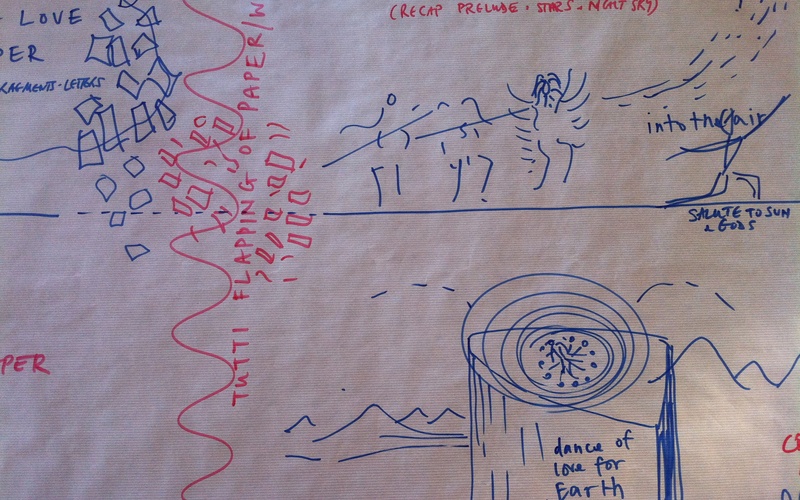 (RECAP PRELUDE · STARS · NIGHT SKY)
LOVE
PER
FRAGMENTS · LETTERS
TUTTI FLAPPING OF PAPER/W
into the air
SALUTE TO SUN
& GODS
PER
dance of
love for
Earth